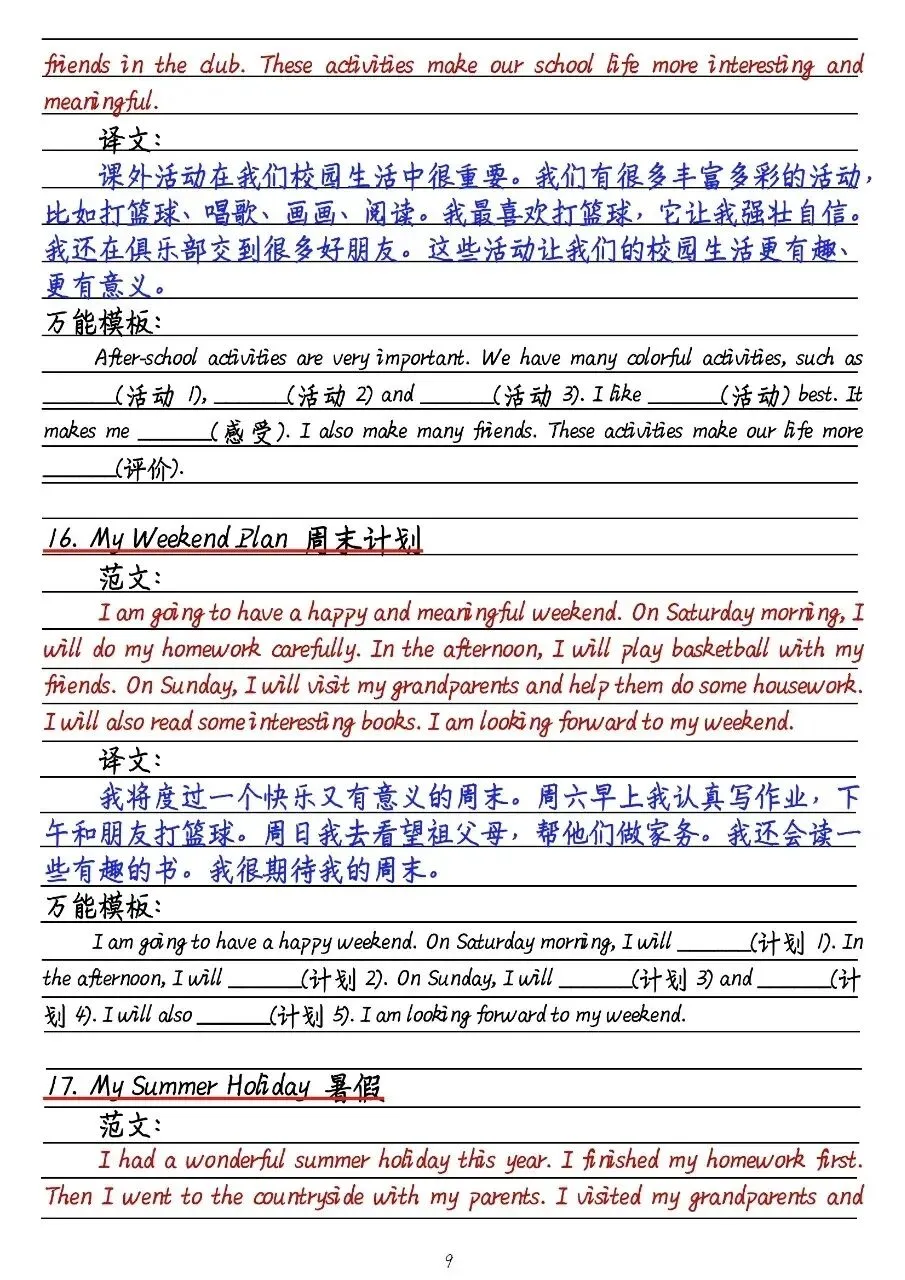 friends in the club. These activities make our school life more interesting and
meaningful.
译文：
课外活动在我们校园生活中很重要。我们有很多丰富多彩的活动，
比如打篮球、唱歌、画画、阅读。我最喜欢打篮球，它让我强壮自信。
我还在俱乐部交到很多好朋友。这些活动让我们的校园生活更有趣、
更有意义。
万能模板：
After-school activities are very important. We have many colorful activities, such as
______(活动 1), ______(活动 2) and ______(活动 3). I like ______(活动) best. It
makes me ______(感受). I also make many friends. These activities make our life more
______(评价).
16. My Weekend Plan 周末计划
范文：
I am going to have a happy and meaningful weekend. On Saturday morning, I
will do my homework carefully. In the afternoon, I will play basketball with my
friends. On Sunday, I will visit my grandparents and help them do some housework.
I will also read some interesting books. I am looking forward to my weekend.
译文：
我将度过一个快乐又有意义的周末。周六早上我认真写作业，下
午和朋友打篮球。周日我去看望祖父母，帮他们做家务。我还会读一
些有趣的书。我很期待我的周末。
万能模板：
I am going to have a happy weekend. On Saturday morning, I will ______(计划 1). In
the afternoon, I will ______(计划 2). On Sunday, I will ______(计划 3) and ______(计
划 4). I will also ______(计划 5). I am looking forward to my weekend.
17. My Summer Holiday 暑假
范文：
I had a wonderful summer holiday this year. I finished my homework first.
Then I went to the countryside with my parents. I visited my grandparents and
9